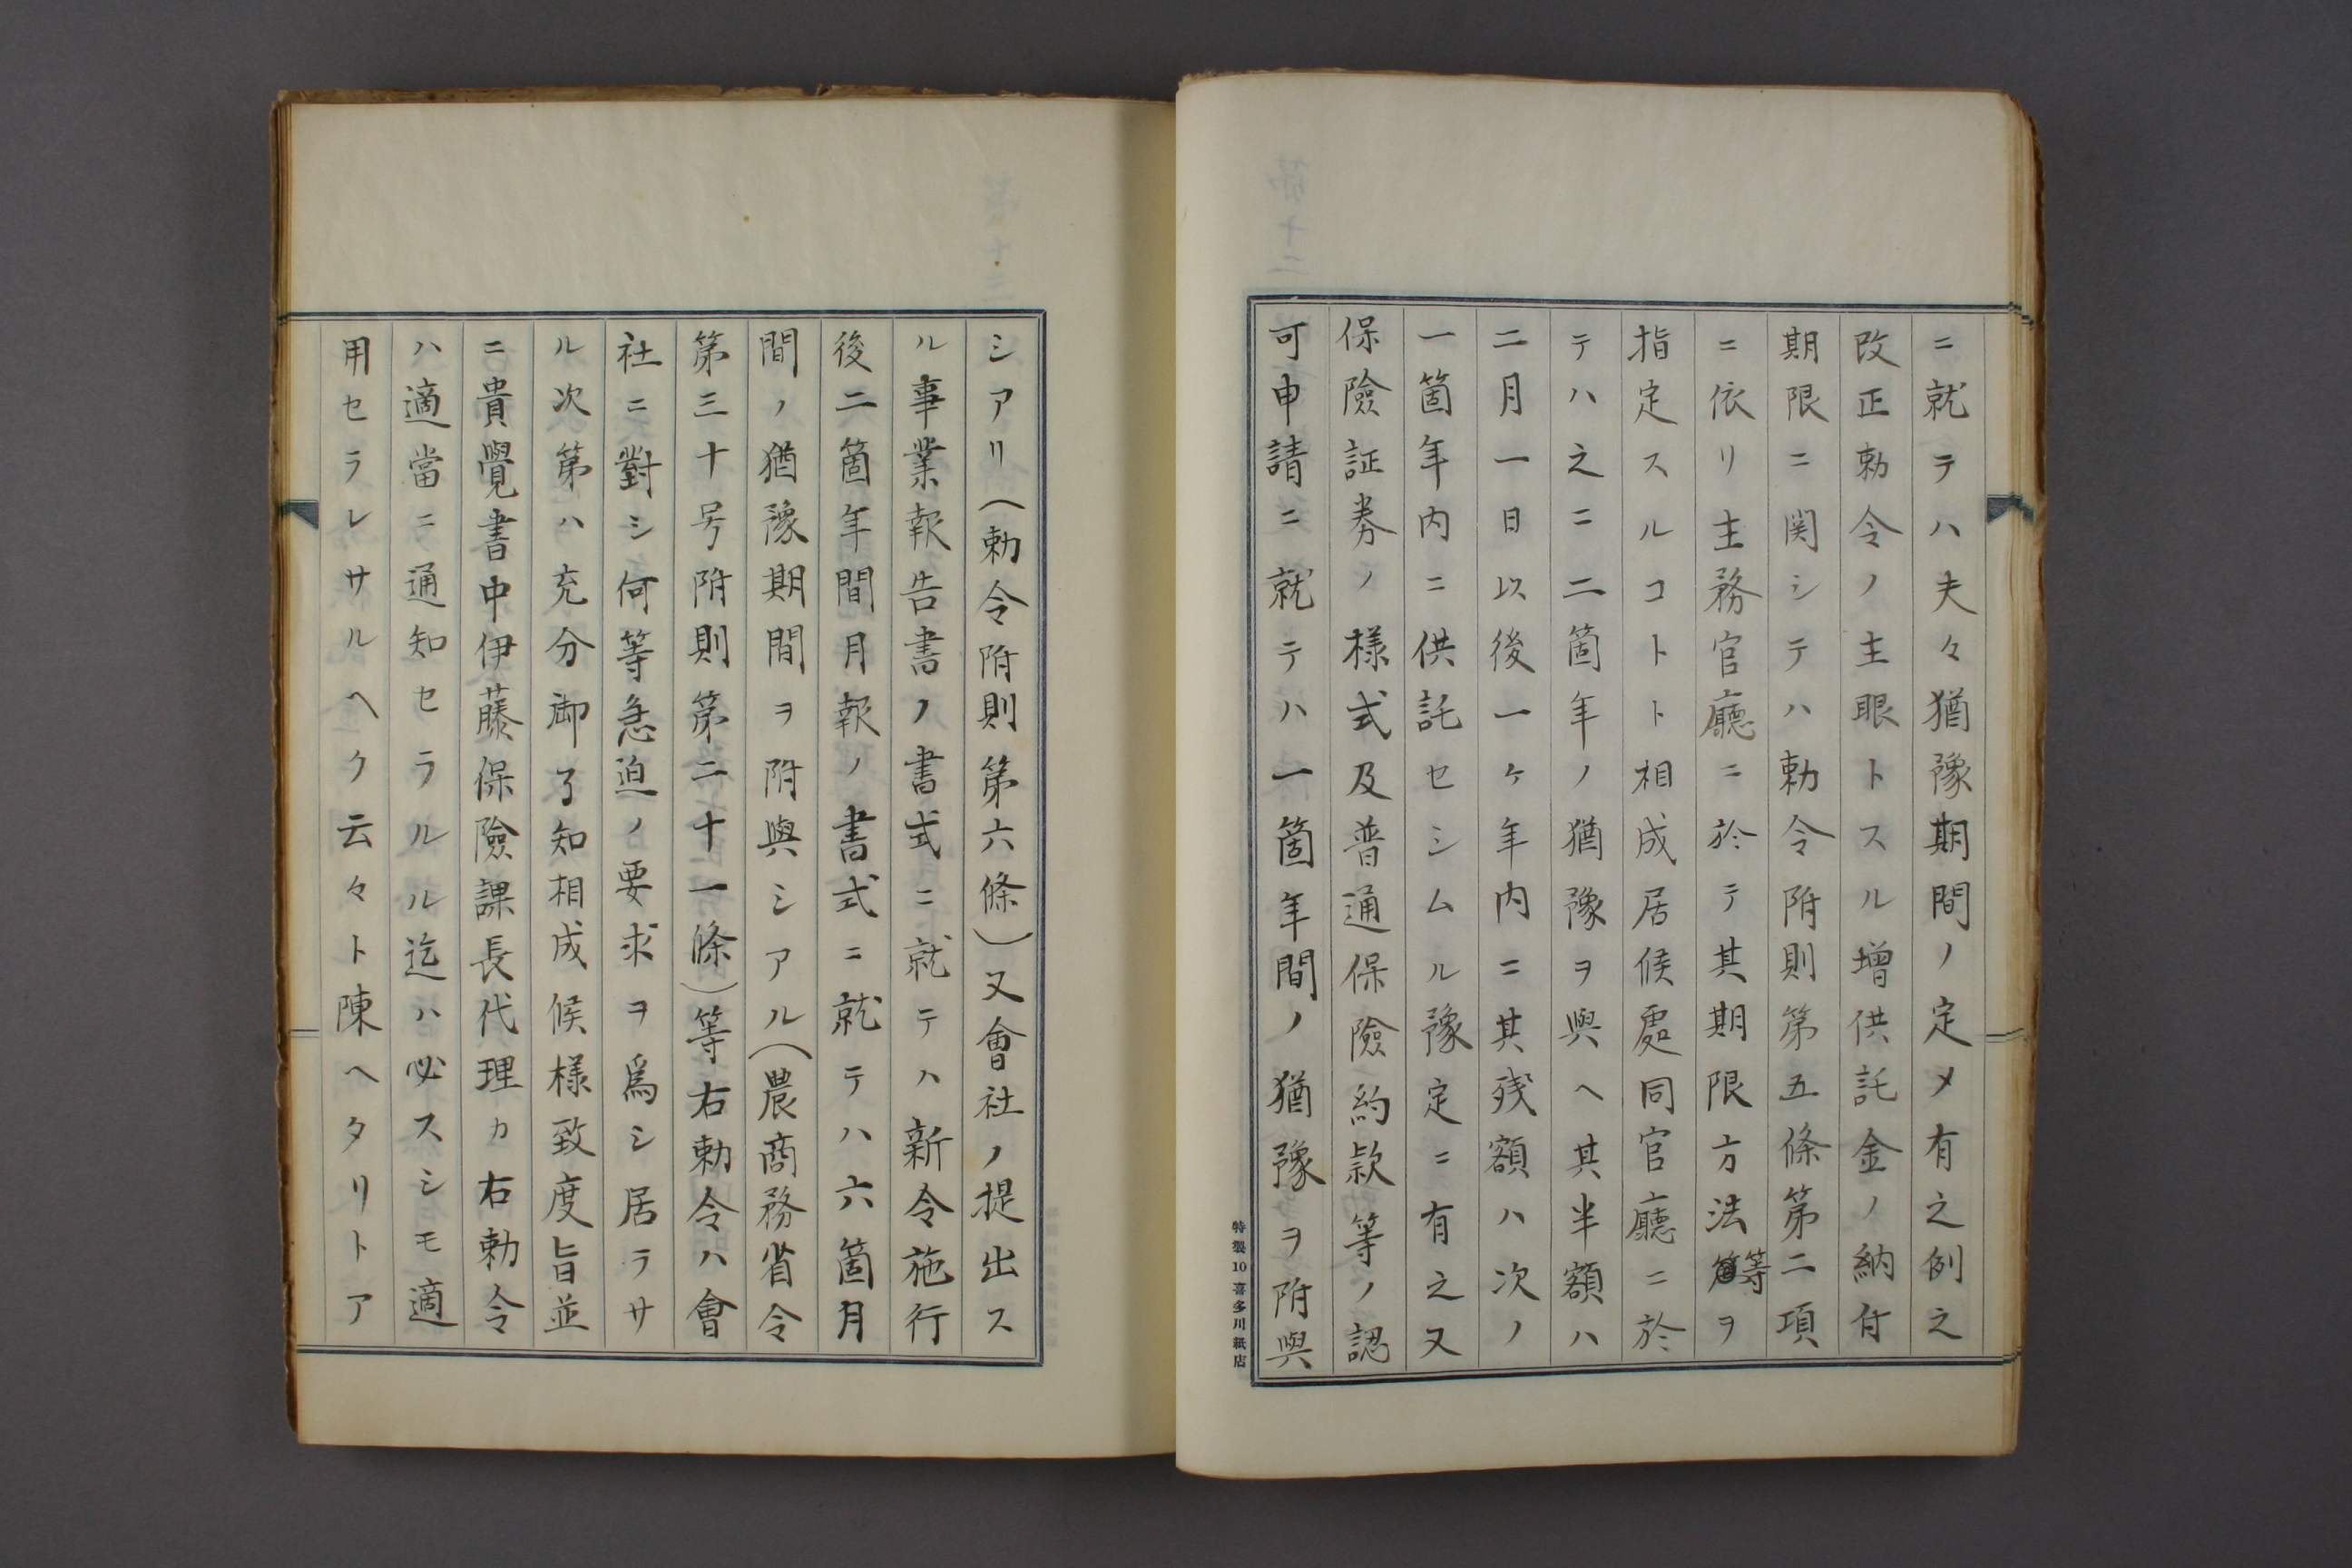 ニ就テハ夫々猶豫期間ノ定メ有之例之
改正勅令ノ主眼トスル增供託金ノ納付
期限ニ関シテハ勅令附則第五條第二項
ニ依リ主務官廳ニ於テ其期限方法等ヲ
指定スルコトト相成居候處同官廳ニ於
テハ之ニ二箇年ノ猶豫ヲ與ヘ其半額ハ
二月一日以後一ヶ年内ニ其残額ハ次ノ
一箇年内ニ供託セシムル豫定ニ有之又
保險証券ノ様式及普通保險約款等ノ認
可申請ニ就テハ一箇年間ノ猶豫ヲ附與
特製10喜多川紙店
シアリ(勅令附則第六條)又會社ノ提出ス
ル事業報告書ノ書式ニ就テハ新令施行
後二箇年間月報ノ書式ニ就テハ六箇月
間ノ猶豫期間ヲ附與シアル(農商務省令
第三十号附則第二十一條)等右勅令ハ會
社ニ對シ何等急迫ノ要求ヲ爲シ居ラサ
ル次第ハ充分御了知相成候様致度旨並
ニ貴覺書中伊藤保險課長代理カ右勅令
ハ適當ニ通知セラルル迄ハ必スシモ適
用セラレサルヘク云々ト陳ヘタリトア